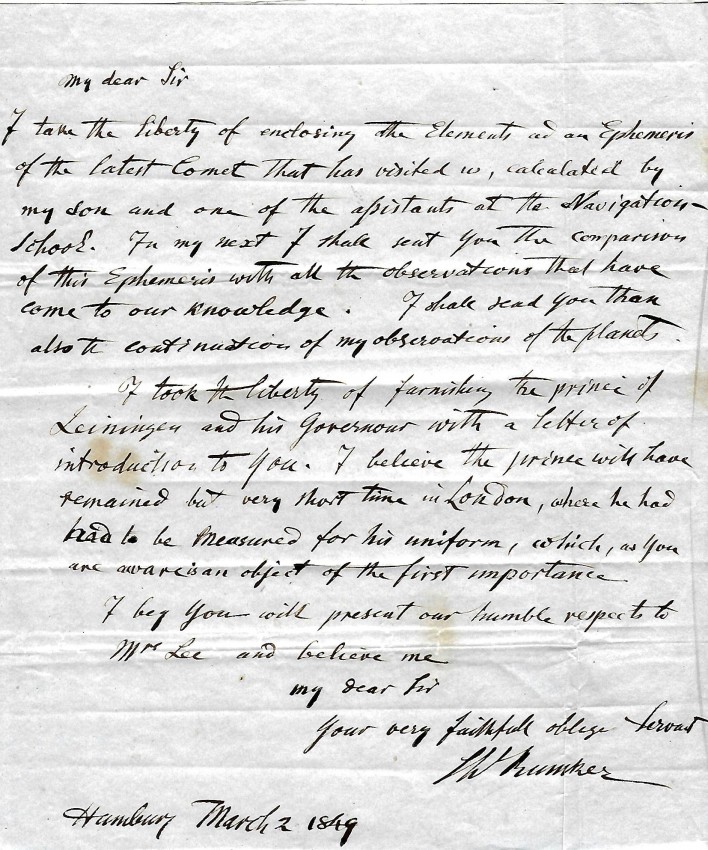 my dear Sir
I take the liberty of enclosing the Elements ad an Ephemeris
of the latest Comet that has visited us, calculated by
my son and one of the assistants at the Navigation-
School. In my next I shall sent you the comparison
of this Ephemeris with all the observations that have
come to our knowledge. I shall send you than
also the continuation of my observations of the planets.
I took the liberty of farnishing the prince of
Leiningen and his Governour with a letter of
introduction to you. I believe the prince will have
remained but very short time in London, where he had
had to be measured for his uniform, which, as you
are aware is an object of the first importance
I beg you will present our humble respects to
Mrs Lee and believe me
my dear Sir
your very faithfull oblege Servant
Rumker
Hamburg March 2 1849